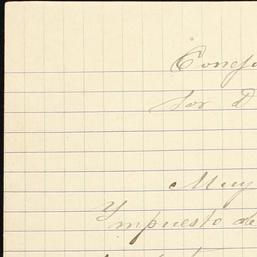 Conse
Sor D
Muy
Y
mpuesto de